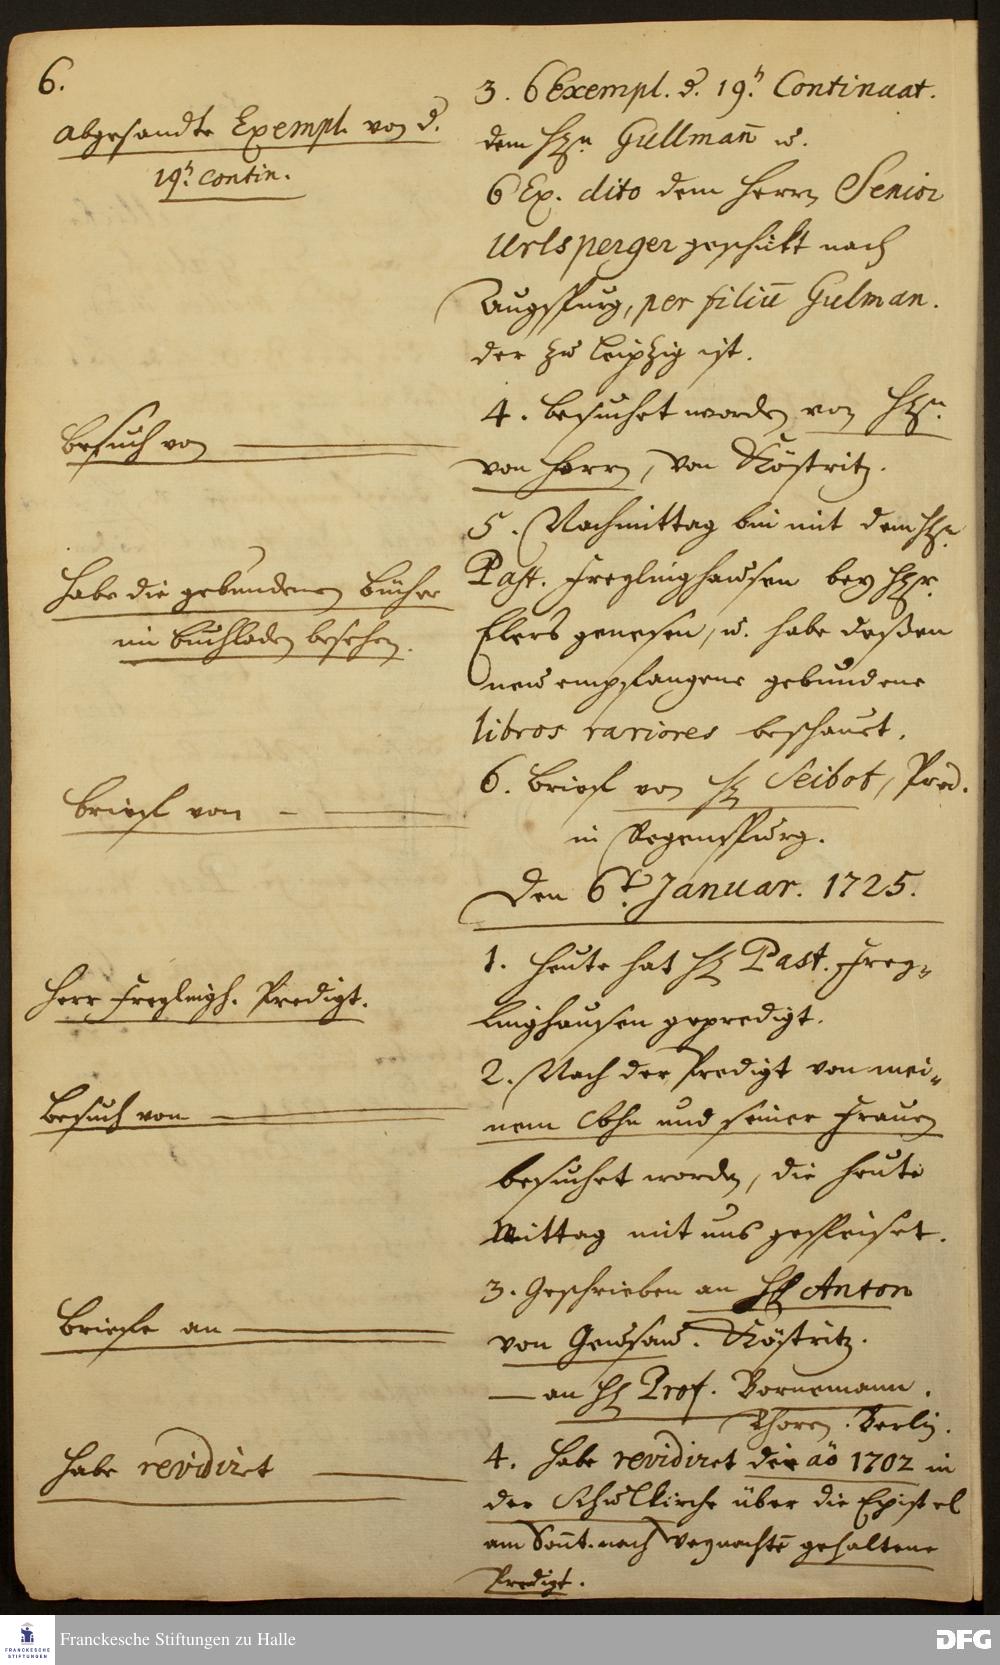 6.
abgesandte Exempl. von d.
19t. contin.
3. 6 Exempl. d. 19t. Continuat.
dem Hrn. Gullman̄ u.
6 Ex. dito dem Herrn Senior
Urlsperger geschikt nach
Augspurg, per filiū Gulman.
der zu Leipzig ist.
Besuch von
4. besuchet worden von Hrn.
von Herrn, von Köstritz.
5. Nachmittag bin mit dem Hrn.
Habe die gebundenen Bücher
im Buchladen besehen.
Past. Freglinghausen bey Hr.
Elers gewesen, u. habe deßen
neu empfangene gebundene
libros rariores beschauet.
Brief von
6. Brief von H Seibot, Pred.
in Regenspurg.
Den 6t. Januar. 1725.
Herr Freglingh. Predigt.
1. Heute hat H Past. Freg-
linghausen gepredigt.
2. Nach der Predigt von mei-
Besuch von
nem Sohn und seiner Frauen
besuchet worden, die heute
Mittag mit uns gespeiset.
Briefe an
3. Geschrieben an H Anton
von Geusau. Köstritz.
— an H Prof. Bornemann.
Thoren. Berlin.
Habe revidiret
4. Habe revidiret die aō 1702 in
der Schulkirche über die Epistel
am Son̄t. nach Weynachtē gehaltene
Predigt.
Franckesche Stiftungen zu Halle
FRANCKESCHE
STIFTUNGEN
DFG